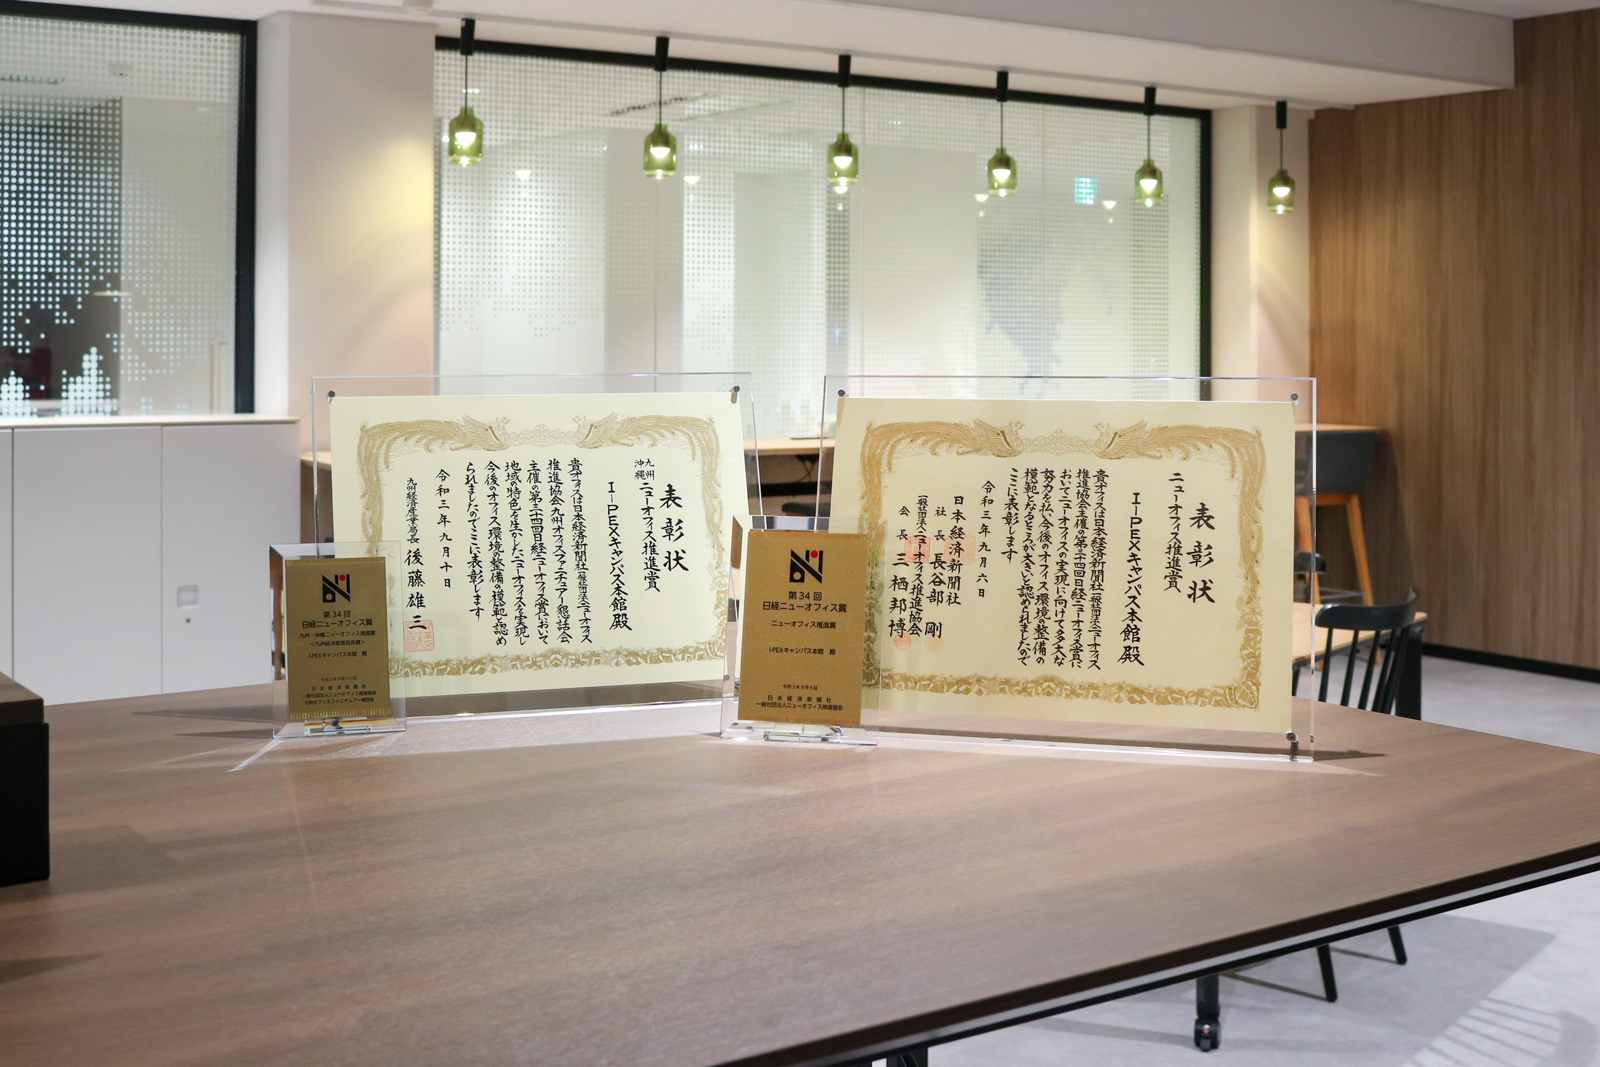 表彰状
九州
沖縄
ニューオフィス推進賞
I-PEXキャンパス本館殿
貴オフィスは日本経済新聞社一般社団法人ニューオフィス
推進協会九州オフィスファニチュアー懇話会
主催の第三十四回日経ニューオフィス賞において
地域の特色を生かしたニューオフィスを実現し
今後のオフィス環境の整備の模範と認め
られましたのでここに表彰します
令和三年九月十日
九州経済産業局長 後藤雄三
第34回
日経ニューオフィス賞
九州・沖縄ニューオフィス推進賞
<九州経済産業局長賞>
I-PEXキャンパス本館 殿
令和3年9月10日
日本経済新聞社
一般社団法人ニューオフィス推進協会
九州オフィスファニチュアー懇話会
表彰状
ニューオフィス推進賞
I-PEXキャンパス本館殿
貴オフィスは日本経済新聞社一般社団法人ニューオフィス
推進協会主催の第三十四回日経ニューオフィス賞に
おいてニューオフィスの実現に向けて多大な
努力を払い今後のオフィス環境の整備の
模範となるところが大きいと認められましたので
ここに表彰します
令和三年九月六日
日本経済新聞社
社長 長谷部 剛
一般社団法人ニューオフィス推進協会
会長 三栖邦博
第34回
日経ニューオフィス賞
ニューオフィス推進賞
I-PEXキャンパス本館 殿
令和3年9月6日
日本経済新聞社
一般社団法人ニューオフィス推進協会